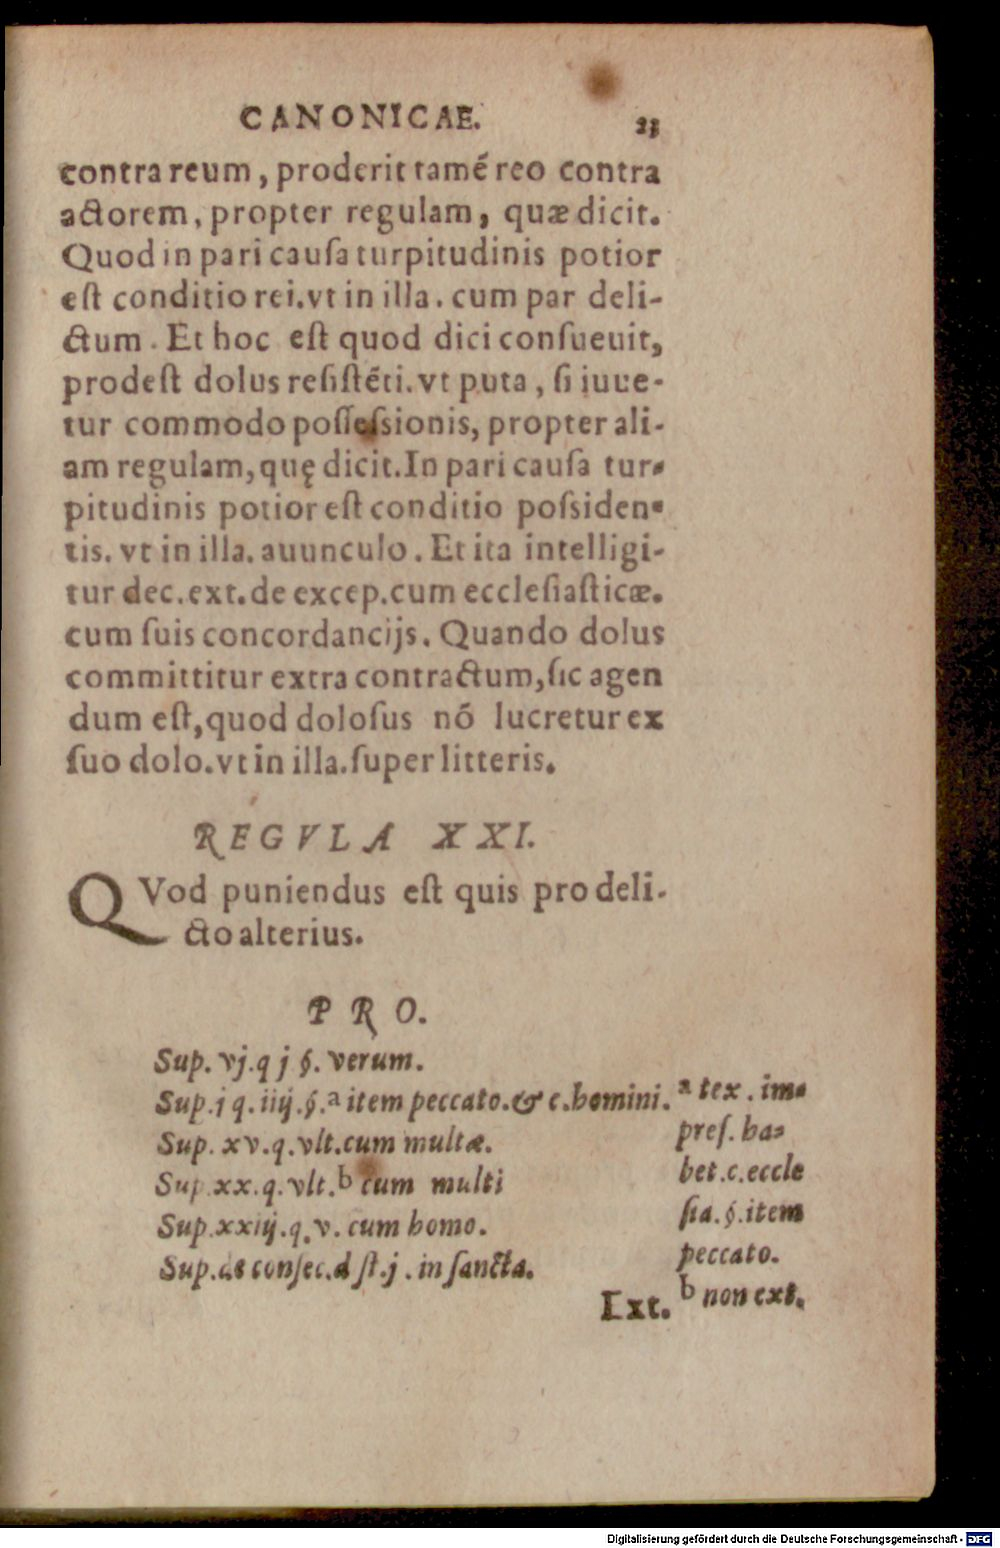 CANONICAE. 23
contra reum, proderit tamé reo contra
actorem, propter regulam, quæ dicit.
Quod in pari cauſa turpitudinis potior
eſt conditio rei. vt in illa. cum par deli-
ctum. Et hoc eſt quod dici conſueuit,
prodeſt dolus reſiſtéti. vt puta, ſi iuue-
tur commodo poſſeſsionis, propter ali-
am regulam, quę dicit. In pari cauſa tur-
pitudinis potior eſt conditio poſsiden-
tis. vt in illa. auunculo. Et ita intelligi-
tur dec. ext. de excep. cum eccleſiaſticæ.
cum ſuis concordancijs. Quando dolus
committitur extra contractum, ſic agen
dum eſt, quod doloſus nó lucretur ex
ſuo dolo. vt in illa. ſuper litteris.
REGVLA XXI.
QVod puniendus eſt quis pro deli-
cto alterius.
PRO.
Sup. vj. q j §. verum.
Sup. j q. iiij. §. a item peccato. & c. homini.
Sup. xv. q. vlt. cum multæ.
Sup. xx. q. vlt. b cum multi
Sup. xxiij. q. v. cum homo.
Sup. de conſec. d ſt. j. in ſancta.
a tex. im-
preſ. ha-
bet. c. eccle
ſia. §. item
peccato.
b non ext.
Ext.
Digitalisierung gefördert durch die Deutsche Forschungsgemeinschaft - DFG